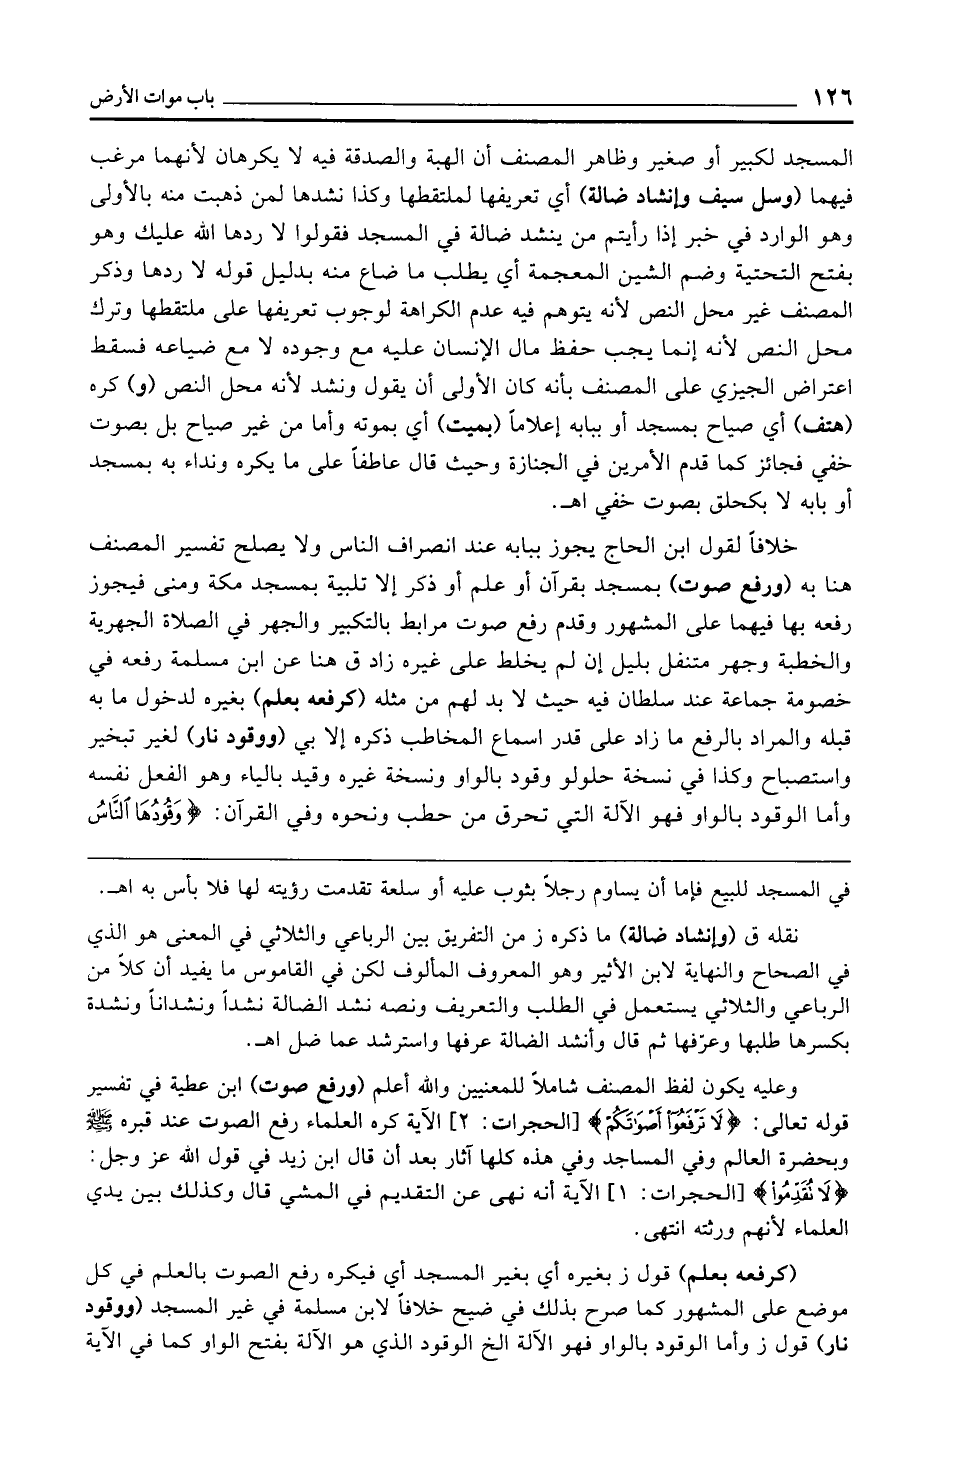 ١٢٦ باب موات الأرض
المسجد لكبير أو صغير وظاهر المصنف أن الهبة والصدقة فيه لا يكرهان لأنهما مرغب
فيهما (وسل سيف وإنشاد ضالة) أي تعريفها لملتقطها وكذا نشدها لمن ذهبت منه بالأولى
وهو الوارد في خبر إذا رأيتم من ينشد ضالة في المسجد فقولوا لا ردها الله عليك وهو
بفتح التحتية وضم الشين المعجمة أي يطلب ما ضاع منه بدليل قوله لا ردها وذكر
المصنف غير محل النص لأنه يتوهم فيه عدم الكراهة لوجوب تعريفها على ملتقطها وترك
محل النص لأنه إنما يجب حفظ مال الإنسان عليه مع وجوده لا مع ضياعه فسقط
اعتراض الجيزي على المصنف بأنه كان الأولى أن يقول ونشد لأنه محل النص (و) كره
(هتف) أي صياح بمسجد أو ببابه إعلاماً (بميت) أي بموته وأما من غير صياح بل بصوت
خفي فجائز كما قدم الأمرين في الجنازة وحيث قال عاطفاً على ما يكره ونداء به بمسجد
أو بابه لا بكحلق بصوت خفي اهـ.
خلافاً لقول ابن الحاج يجوز ببابه عند انصراف الناس ولا يصلح تفسير المصنف
هنا به (ورفع صوت) بمسجد بقرآن أو علم أو ذكر إلا تلبية بمسجد مكة ومنى فيجوز
رفعه بها فيهما على المشهور وقدم رفع صوت مرابط بالتكبير والجهر في الصلاة الجهرية
والخطبة وجهر متنفل بليل إن لم يخلط على غيره زاد ق هنا عن ابن مسلمة رفعه في
خصومة جماعة عند سلطان فيه حيث لا بد لهم من مثله (كرفعه بعلم) بغيره لدخول ما به
قبله والمراد بالرفع ما زاد على قدر اسماع المخاطب ذكره إلا بي (ووقود نار) لغير تبخير
واستصباح وكذا في نسخة حلولو وقود بالواو ونسخة غيره وقيد بالياء وهو الفعل نفسه
وأما الوقود بالواو فهو الآلة التي تحرق من حطب ونحوه وفي القرآن: ﴿وَقُودُهَا ٱلنَّاسُ
في المسجد للبيع فإما أن يساوم رجلاً بثوب عليه أو سلعة تقدمت رؤيته لها فلا بأس به اهـ.
نقله ق (وإنشاد ضالة) ما ذكره ز من التفريق بين الرباعي والثلاثي في المعنى هو الذي
في الصحاح والنهاية لابن الأثير وهو المعروف المألوف لكن في القاموس ما يفيد أن كلاً من
الرباعي والثلاثي يستعمل في الطلب والتعريف ونصه نشد الضالة نشداً ونشداناً ونشدة
بكسرها طلبها وعرّفها ثم قال وأنشد الضالة عرفها واسترشد عما ضل اهـ.
وعليه يكون لفظ المصنف شاملاً للمعنيين والله أعلم (ورفع صوت) ابن عطية في تفسير
قوله تعالى: ﴿لَا تَرْفَعُوٓا۟ أَصْوَٰتَكُمْ﴾ [الحجرات: ٢] الآية كره العلماء رفع الصوت عند قبره ﷺ
وبحضرة العالم وفي المساجد وفي هذه كلها آثار بعد أن قال ابن زيد في قول الله عز وجل:
﴿لَا تُقَدِّمُوا۟﴾ [الحجرات: ١] الآية أنه نهى عن التقديم في المشي قال وكذلك بين يدي
العلماء لأنهم ورثته انتهى.
(كرفعه بعلم) قول ز بغيره أي بغير المسجد أي فيكره رفع الصوت بالعلم في كل
موضع على المشهور كما صرح بذلك في ضيح خلافاً لابن مسلمة في غير المسجد (ووقود
نار) قول ز وأما الوقود بالواو فهو الآلة الخ الوقود الذي هو الآلة بفتح الواو كما في الآية